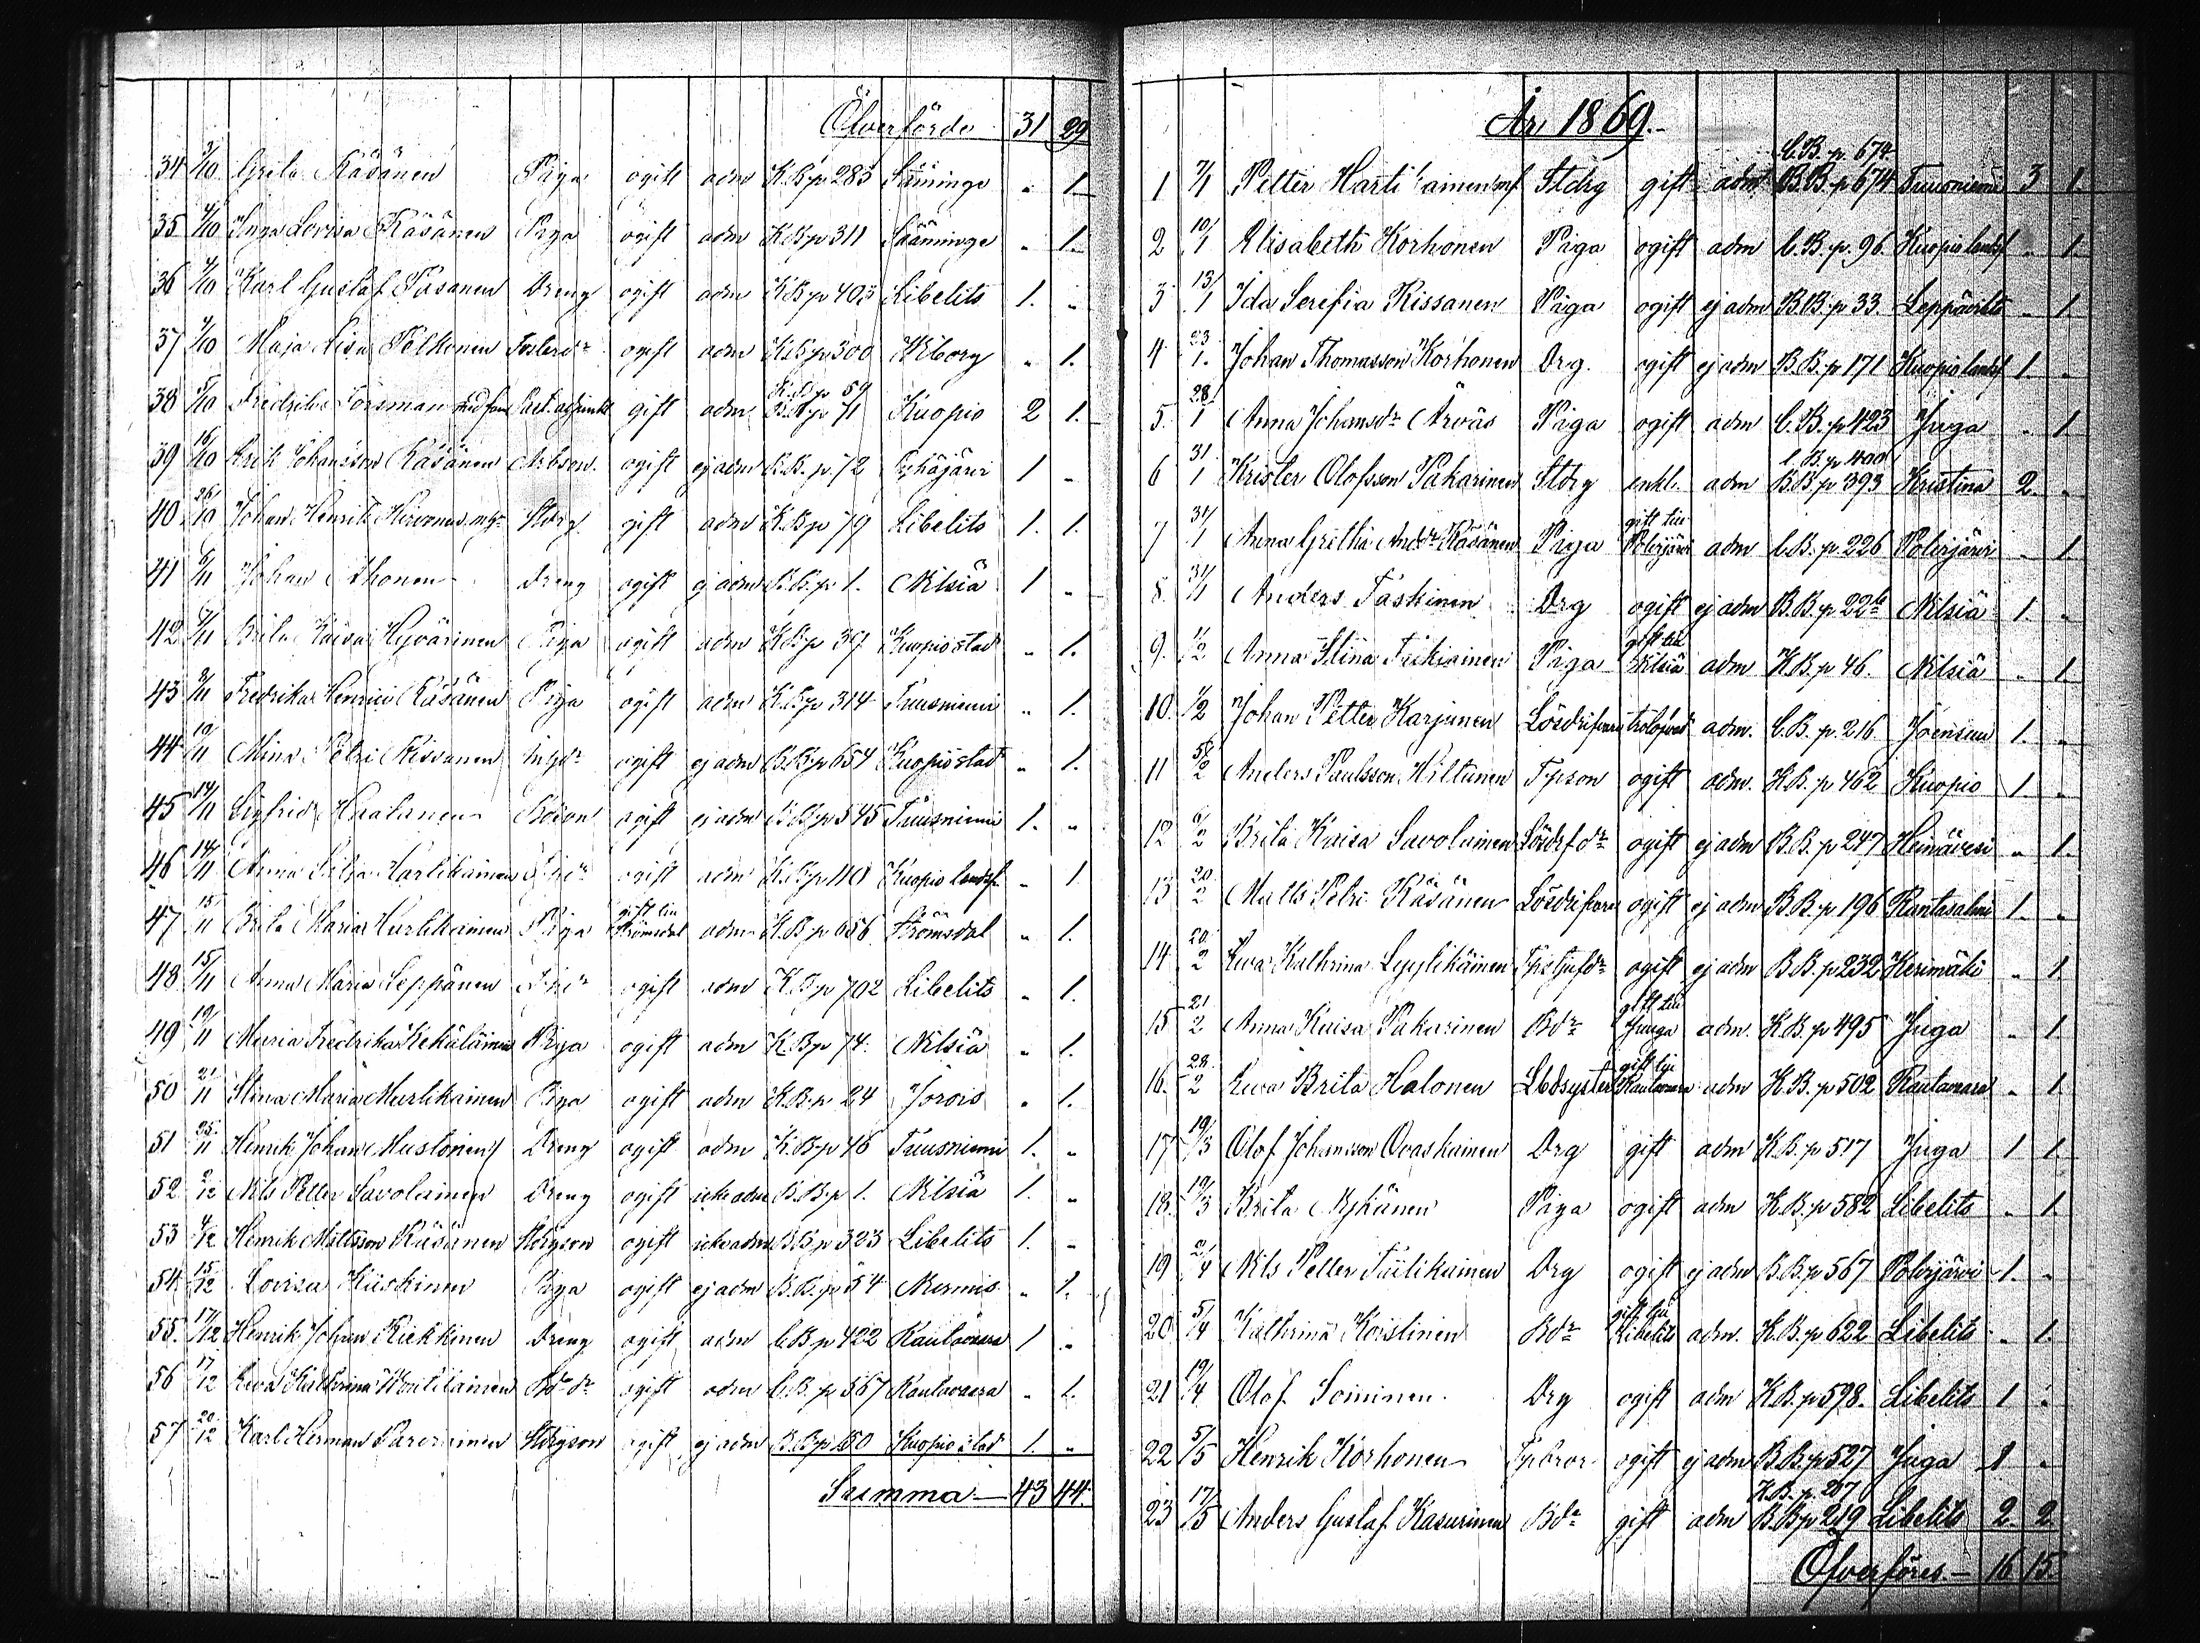 Öfverförde 31 29
34 3/10 Greta Räsänen Piga ogift adm K.B.p 285 Sääminge " 1.
35 4/10 Inga Lovisa Räsänen Piga ogift adm K.B.p 311 Sääminge " 1.
36 4/10 Karl Gustaf Pasanen Dreng ogift adm K.B.p 403 Libelits 1. "
37 4/10 Maja Lisa Pölkönen ogift adm K.B.p 300 Wiborg " 1.
38 5/10 Fredrik Forsman gift adm K.B.p 59 B.B.p 71 Kuopio 2 1.
39 16/10 Erik Johansson Räsänen ogift ej adm B.B.p. 72 Pyhäjärvi 1 "
40 26/10 Johan Henrik Hirvonen m.h. Stdrg. gift adm K.B.p 79 Libelits 1. 1.
41 6/11 Johan Ahonen Dreng ogift ej adm B.B.p 1. Nilsiä 1 "
42 7/11 Brita Kaisa Hyvärinen Piga ogift adm K.B.p 37 Kuopio stad " 1.
43 9/11 Fredrika Henrici Räsänen Piga ogift adm K.B.p 314 Tuusniemi " 1.
44 10/11 Mina Petri Kisvanen ogift ej adm B.B.p 654 Kuopio stad " 1.
45 14/11 Sigfrid Haalanen ogift ej adm B.B.p 545 Tuusniemi 1. "
46 14/11 Anna Silja Hartikainen ogift adm K.B.p 110 Kuopio landsf " 1
47 15/11 Brita Maria Hurtikainen Piga gift till Strömsdal adm K.B.p 656 Strömsdal " 1.
48 15/11 Anna Maria Leppänen ogift adm K.B.p 702 Libelits " 1.
49 19/11 Maria Fredrika Kekäläinen Piga ogift adm K.B.p 74. Nilsiä " 1.
50 21/11 Stina Maria Murtikainen Piga ogift adm K.B.p 24 Jorois " 1.
51 25/11 Henrik Johan Mustonen Dreng ogift adm K.B.p 46 Tuusniemi 1. "
52 2/12 Nils Petter Savolainen Dreng ogift icke adm B.B.p 1. Nilsiä 1. "
53 4/12 Henrik Mattsson Räsänen Stdrgson ogift icke adm B.B.p 323 Libelits 1. "
54. 15/12 Lovisa Kuskinen Piga ogift ej adm B.B.p 54 Nurmis " 1.
55. 17/12 Henrik Johan Kiekkinen Dreng ogift adm C.B.p 422 Rautavaara 1 "
56 17/12 Ewa Kathrina Woutilainen ogift adm C.B.p 567 Rautavaara " 1.
57 20/12 Karl Herman Stdrgson ogift ej adm B.B.p 150 Kuopio stad 1. "
Summa 43 44.
År 1869.
1 7/1 Petter Hartikainen m f Stdrg gift adm C.B.p. 674 B.B.p 674 Tuusniemi 3 1.
2 10/1 Elisabeth Korhonen Piga ogift adm C.B.p. 96 Kuopio landsf " 1.
3 13/1 Ida Serefia Kissanen Piga ogift ej adm B.B.p 33. Leppävirta " 1
4 23/1. Johan Thomasson Korhonen Drg. ogift ej adm B.B.p 171 Kuopio landsf 1. "
5. 28/1 Anna Johansdr Ärväs Piga ogift adm C.B.p 423 Juga " 1.
6 31/1 Krister Olofsson Pakarinen Stdrg enkl. adm C.B.p 400 B.B.p 393 Kristina 2. "
7 31/1 Anna Gretha Andr Räsänen Piga gift till Polvijärvi adm C.B.p. 226 Polvijärvi " 1
8. 31/1 Anders Taskinen Drg ogift ej adm B.B.p 22b Nilsiä 1. "
9. 1/2 Anna Stina Tirkiainen Piga gift till Nilsiä adm K.B.p 46. Nilsiä " 1.
10. 1/2 Johan Petter Karjunen Lösdrifvare trolofvad adm. C.B.p. 216 Joensuu 1. "
11 5/2 Anders Paulsson Hiltunen Tpson ogift adm. K.B.p 462 Kuopio 1. "
12 6/2 Brita Kaisa Savolainen Lösdrf dr ogift ej adm B.B.p 247 Heinävesi " 1.
13 20/2 Matts Petri Räsänen Lösdrifvare ogift ej adm B.B.p 196 Rantasalmi 1. "
14 20/2 Ewa Kathrina Lyytikäinen ogift ej adm B.B.p 232 Kerimäki " 1
15 21/2 Anna Kaisa Pakarinen Bdr gift till Juuga adm. K.B.p 495 Juga " 1.
16. 28/2 Ewa Brita Halonen Lbdsyster gift till Rautavaara adm K.B.p 502 Rautavaara " 1.
17 19/3 Olof Johansson Ovaskainen Drg gift adm K.B.p 517 Juga 1 1.
18. 19/3 Brita Rykänen Piga ogift adm K.B.p 582 Libelits " 1.
19 2/4 Nils Petter Tiilikainen Drg ogift ej adm B.B.p 567 Polvijärvi 1. "
20 5/4 Kathrina Koistinen Bdr gift till Libelits adm. K.B.p 622 Libelits " 1.
21 19/4 Olof Soininen. Drg ogift adm K.B.p 598. Libelits 1 "
22 5/5 Henrik Korhonen Tpbror ogift ej adm B.B.p 527 Juga 1 "
23 17/5 Anders Gustaf Kasurinen Bdr gift adm K.B.p. 207 B.B.p 219 Libelits 2 2
Öfverföres 16 15.